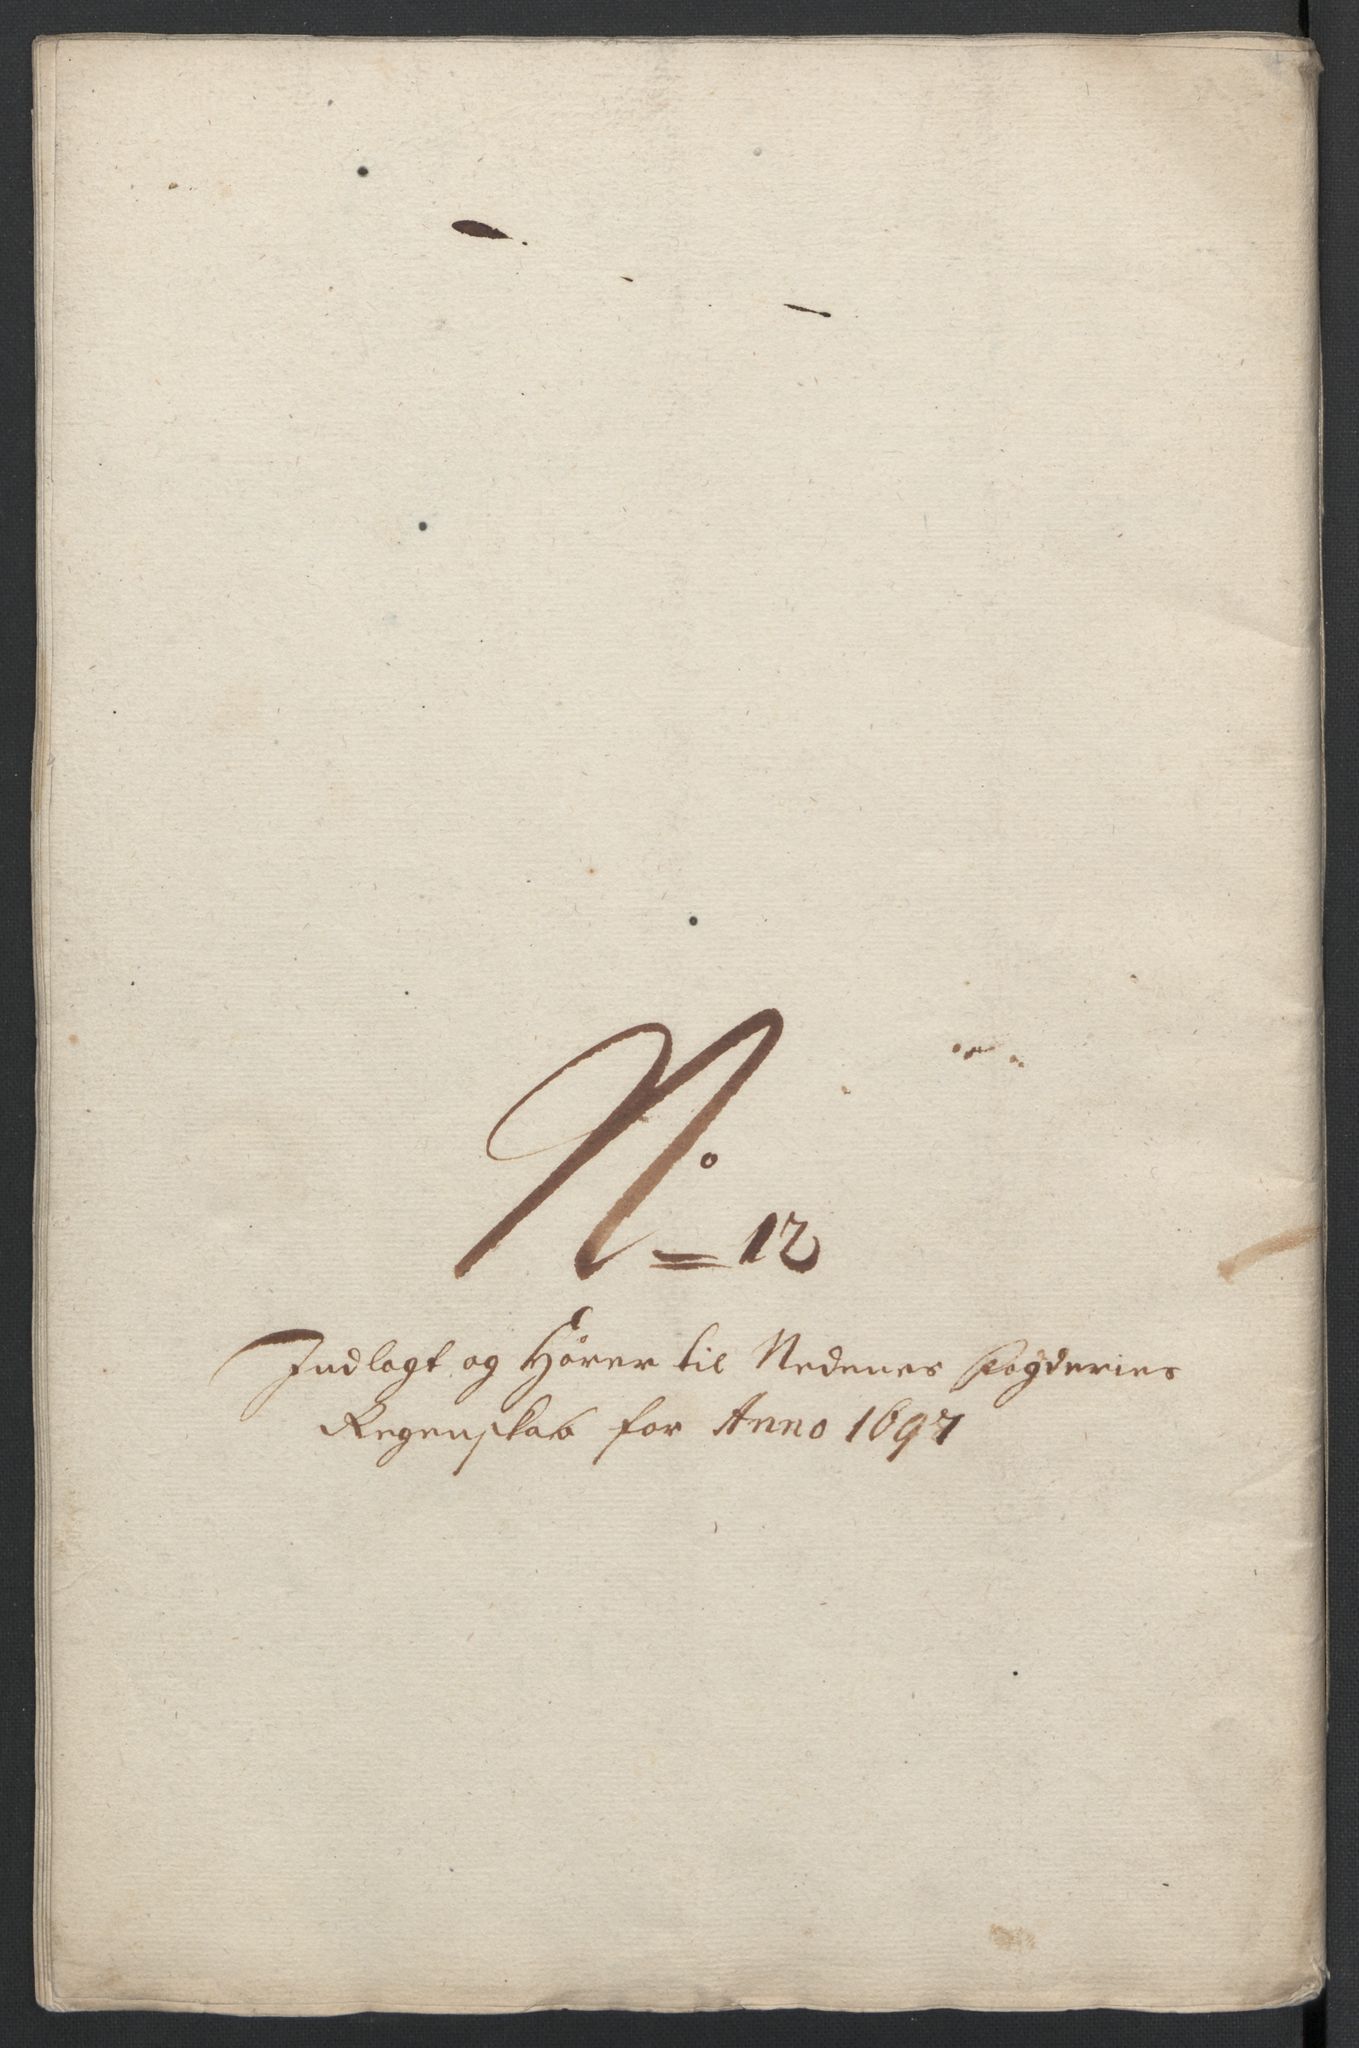 No 12
Indlagt og Hörer til Nedenes Fogderies
Regenskab for Anno 1697